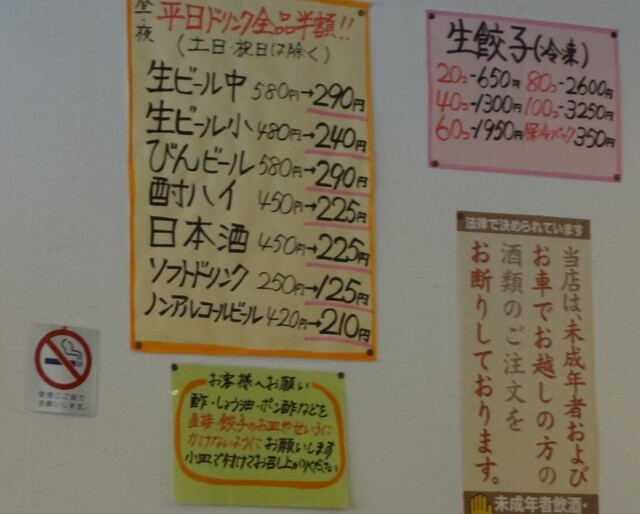 昼・夜
平日ドリンク全品半額!!
(土日・祝日は除く)
生ビール中 580円→290円
生ビール小 480円→240円
びんビール 580円→290円
酎ハイ 450円→225円
日本酒 450円→225円
ソフトドリンク 250円→125円
ノンアルコールビール 420円→210円
生餃子(冷凍)
20コ-650円 80コ-2600円
40コ-1300円 100コ-3250円
60コ-1950円 保冷パック350円
法律で決められています
当店は、未成年者および
お車でお越しの方の
酒類のご注文を
お断りしております。
未成年者飲酒・
お客様へお願い
酢・しょう油・ポン酢などを
直接餃子のお皿やせいろに
かけないようにお願いします
小皿で付けてお召し上がりください